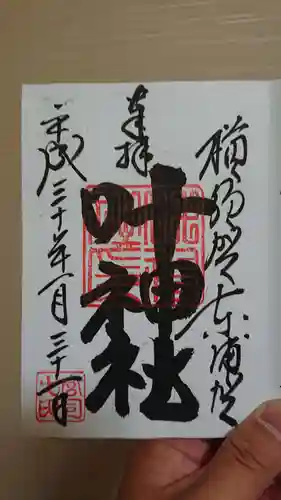 横須賀東浦賀
奉拝
叶神社
平成三十年一月三十一日